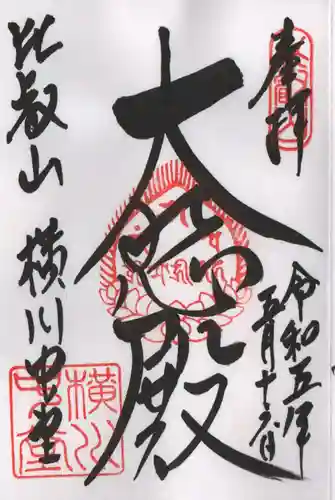 奉拝
令和五年
五月十六日
大悲殿
比叡山 横川中堂
横川
中堂